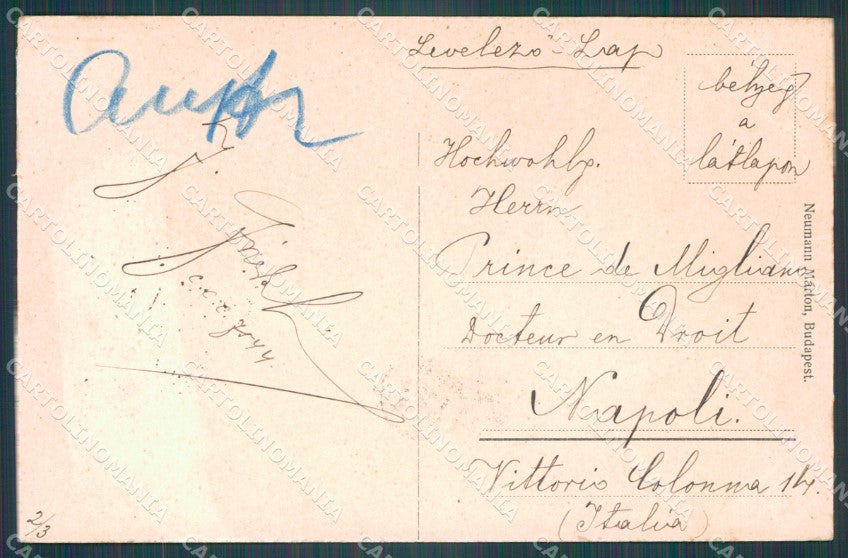 Levelező-Lap
bélyeg
a
látlapon
Hochwohlg.
Herrn
Prince de Migliano
Docteur en Droit
Napoli.
Vittorio Colonna 14.
(Italia)
Neumann Márton, Budapest.
J.
2/3
CARTOLINOMANIA